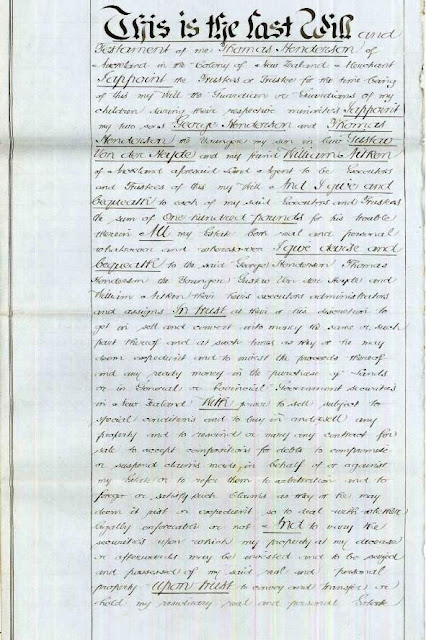 This is the last Will and
Testament of me Thomas Henderson of
Auckland in the Colony of New Zealand Merchant
I appoint the Trustees or Trustee for the time being
of this my Will the Guardian or Guardians of my
children during their respective minorities I appoint
my two sons George Henderson and Thomas
Henderson the Younger my son in law Gustav
Von der Heyde and my friend William Aitken
of Auckland aforesaid Land Agent to be Executors
and Trustees of this my Will And I give and
bequeath to each of my said Executors and Trustees
the sum of One hundred pounds for his trouble
therein All my Estate both real and personal
whatsoever and wheresoever I give devise and
bequeath to the said George Henderson Thomas
Henderson the Younger Gustav Von der Heyde and
William Aitken their heirs executors administrators
and assigns In trust at their or his discretion to
get in sell and convert into money the same or such
part thereof and at such times as they or he may
deem expedient and to invest the proceeds thereof
and any ready money in the purchase of Lands
or in General or Provincial Government securities
in New Zealand With power to sell subject to
special conditions and to buy in and resell any
property and to rescind or vary any contract for
sale to accept compositions for debts to compromise
or suspend claims made in behalf of or against
my Estate or to refer them to arbitration and to
forego or satisfy such claims as they or he may
deem it just or expedient so to deal with whether
legally enforceable or not And to vary the
securities upon which my property at my decease
or afterwards may be invested and to be seized
and possessed of my said real and personal
property Upon trust to convey and transfer or
hold my residuary real and personal Estate